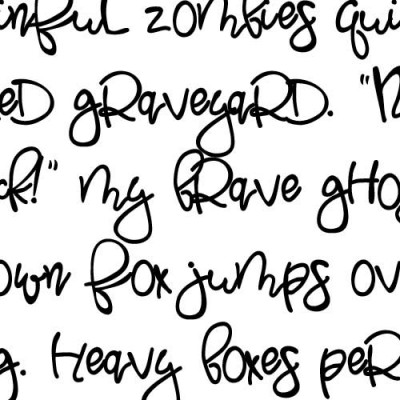 inful zombies qui
ed graveyard. "N
ck!" my brave gho
own fox jumps ov
g. Heavy boxes per